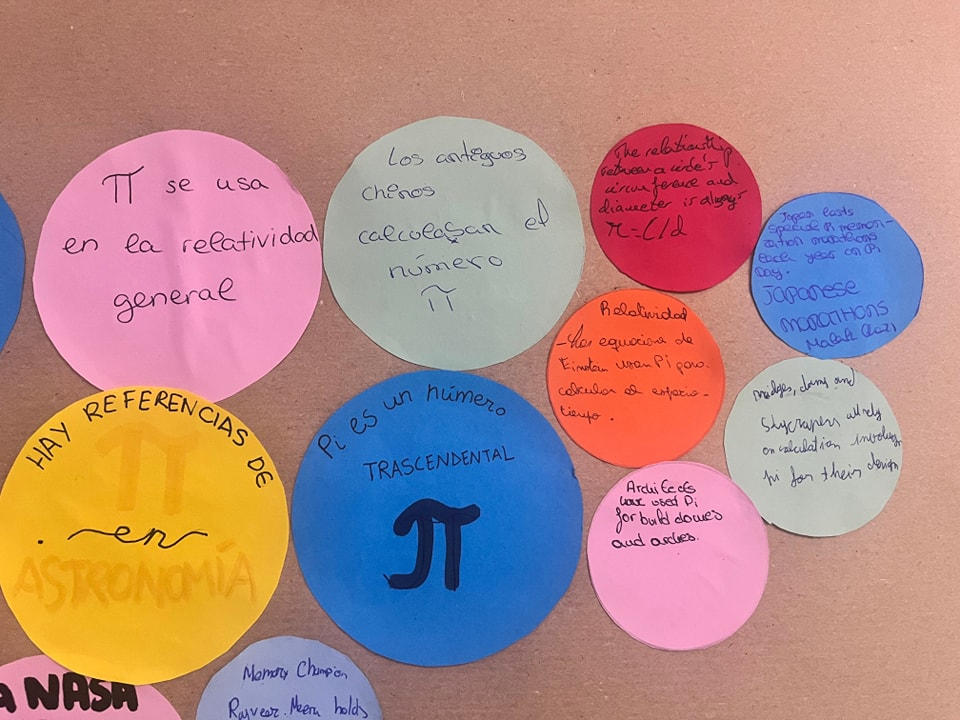 π se usa
en la relatividad
general
Los antiguos
chinos
calculaban el
número
π
The relationship
between a circle's
circumference and
diameter is always
π=C/d
Japan hosts
special Pi memori-
zation marathons
each year on Pi
Day.
JAPANESE
MARATHONS
Relatividad
-Las equacione de
Einstein usan Pi para
calcular el espacio-
tiempo.
bridges, dams and
Skycrapers all rely
on calculation involving
pi for their design
HAY REFERENCIAS DE
π
en
ASTRONOMÍA
Pi es un número
TRASCENDENTAL
π
Architects
have used Pi
for build domes
and arches.
A NASA
Memory Champion
Rajveer Meena holds